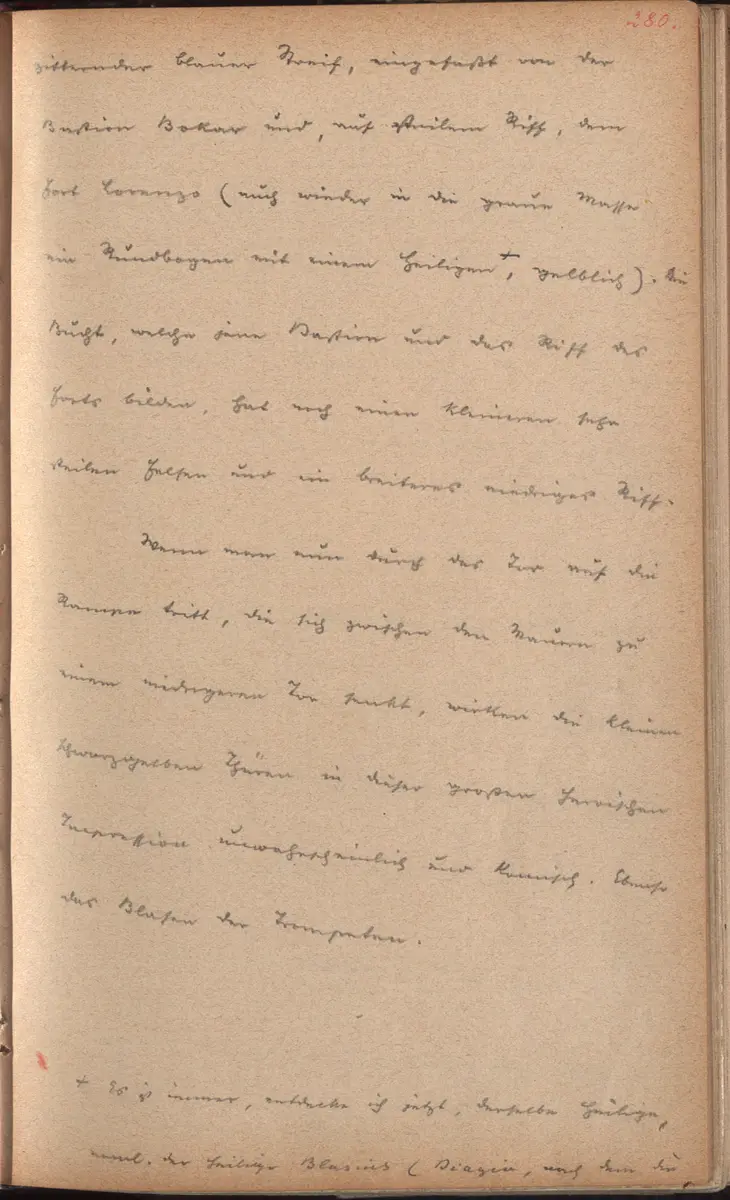 280.
zitternder blauer Streif, eingefaßt von der
Bastion Bokar und, auf steilem Riff, dem
Fort Lorenzo (auch wieder in die graue Masse
ein Rundbogen mit einem Heiligen +, gelblich). Die
Bucht, welche jene Bastion und das Riff des
Forts bilden, hat noch einen kleineren sehr
steilen Felsen und ein breiteres niedriges Riff.
Wenn man nun durch das Tor auf die
Rampe tritt, die sich zwischen den Mauern zu
einem niedrigeren Tor senkt, wirken die kleinen
schwarzgelben Thüren in dieser großen heroischen
Impression unwahrscheinlich und komisch. Ebenso
das Blasen der Trompeten.
+ Es is immer, entdecke ich jetzt, derselbe Heilige,
naml. der heilige Blasius (Biagio, nach dem die